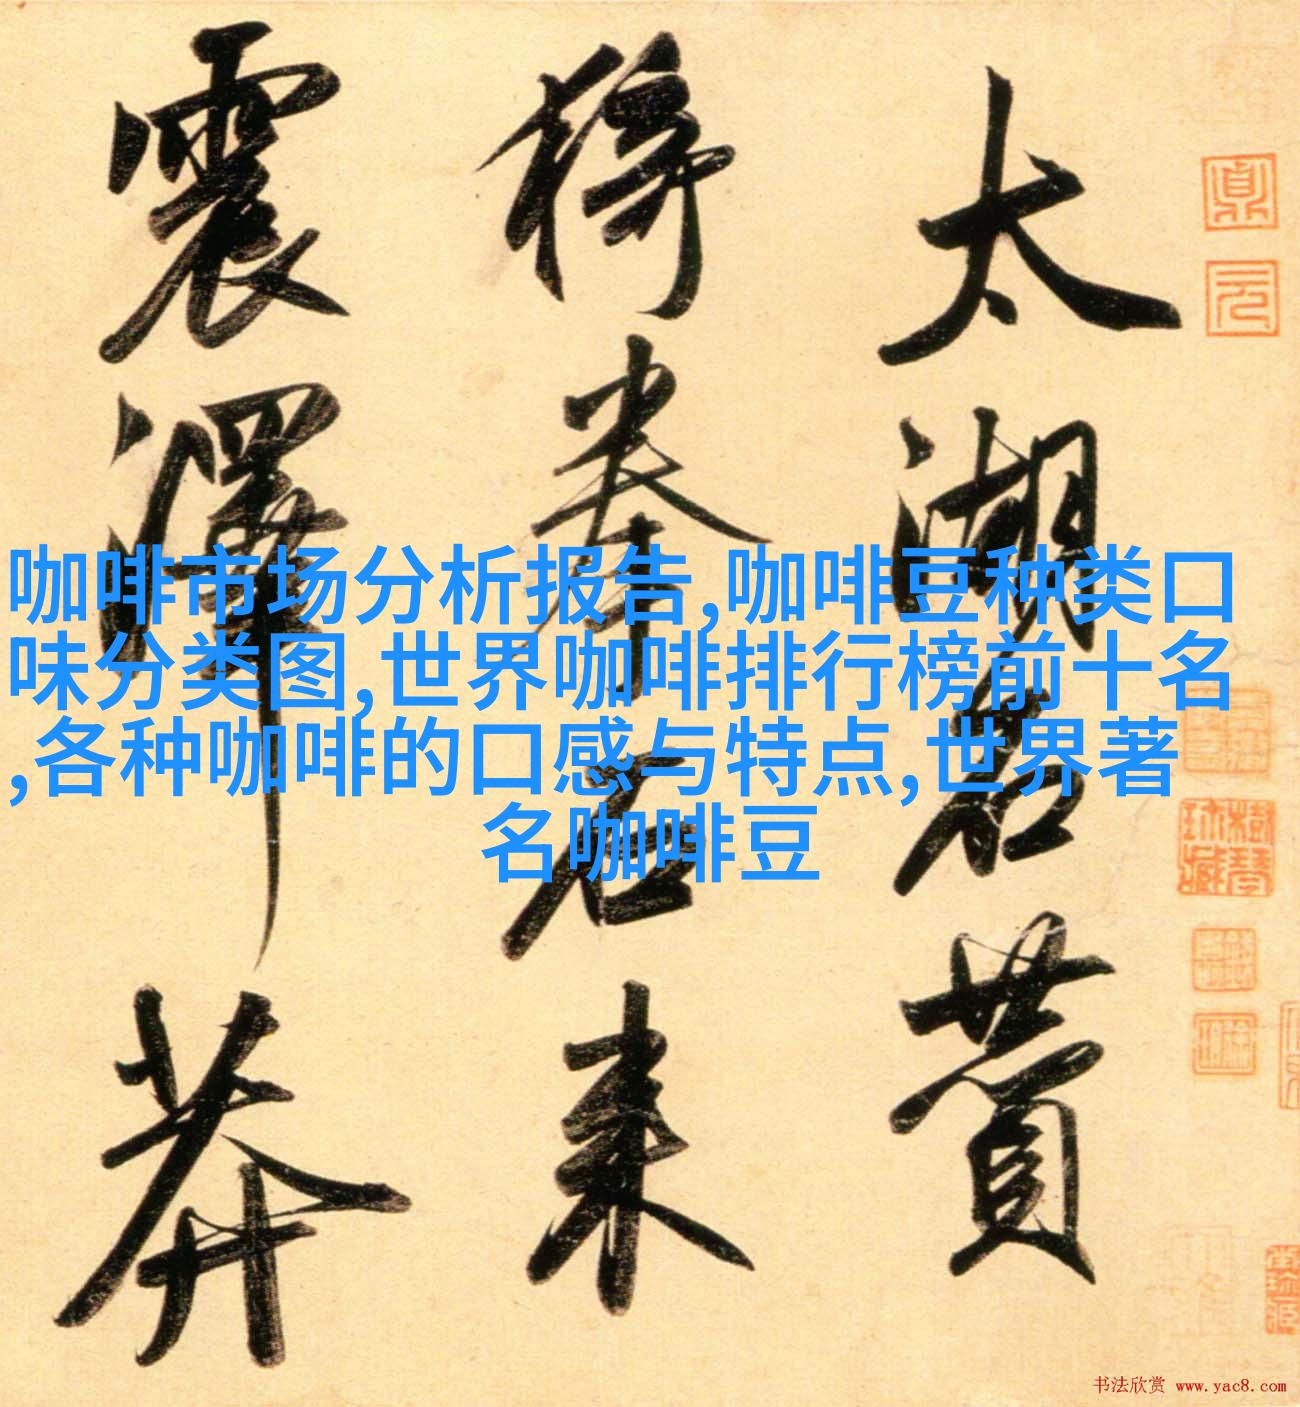 太湖石贊
猗拳石来
震澤莽
咖啡市场分析报告,咖啡豆种类口
味分类图,世界咖啡排行榜前十名
,各种咖啡的口感与特点,世界著
名咖啡豆
书法欣赏 www.yac8.com